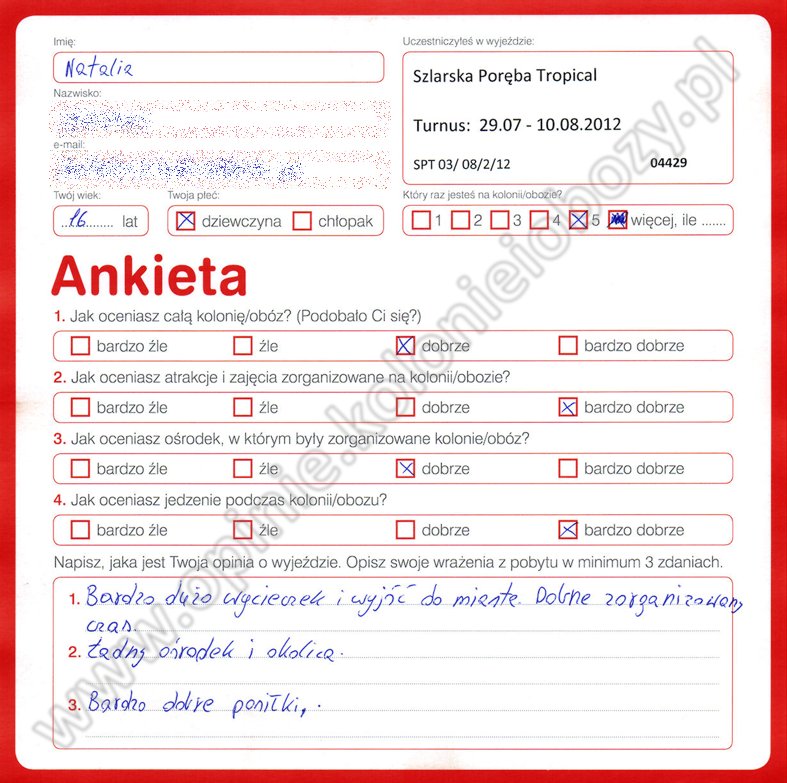 Imię:
Natalia
Uczestniczyłeś w wyjeździe:
Szlarska Poręba Tropical
Turnus: 29.07 - 10.08.2012
SPT 03/ 08/2/12 04429
Nazwisko:
e-mail:
Twój wiek:
..16........ lat
Twoja płeć:
dziewczyna chłopak
Który raz jesteś na kolonii/obozie?
1 2 3 4 5 więcej, ile .......
Ankieta
1. Jak oceniasz całą kolonię/obóz? (Podobało Ci się?)
bardzo źle źle dobrze bardzo dobrze
2. Jak oceniasz atrakcje i zajęcia zorganizowane na kolonii/obozie?
bardzo źle źle dobrze bardzo dobrze
3. Jak oceniasz ośrodek, w którym były zorganizowane kolonie/obóz?
bardzo źle źle dobrze bardzo dobrze
4. Jak oceniasz jedzenie podczas kolonii/obozu?
bardzo źle źle dobrze bardzo dobrze
Napisz, jaka jest Twoja opinia o wyjeździe. Opisz swoje wrażenia z pobytu w minimum 3 zdaniach.
1. Bardzo dużo wycieczek i wyjść do miasta. Dobrze zorganizowany
czas.
2. Ładny ośrodek i okolica.
3. Bardzo dobre posiłki,.
www.opinie.kolonieiobozy.pl